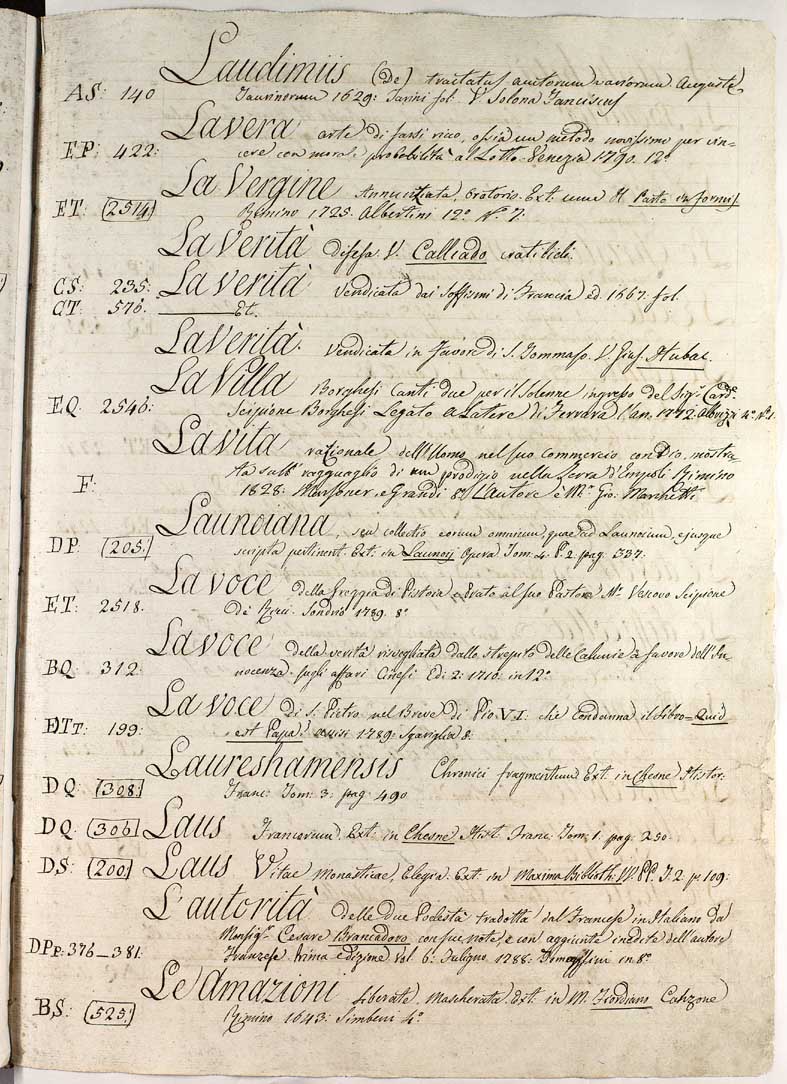 Laudimiis (De) tractatus auctorum variorum Auguste
AS: 140 Taurinorum 1629: Tarini fol. V. Solona
Lavera arte di farsi rico, ossia un metodo novissimo per vin-
EP: 422: cere con morale probabilità al Lotto. Venezia 1790. 12º
La Vergine Annuntiata, Oratorio. Ext.
ET: 2514: Rimino 1725. Albertini 12º Nº 7:
La Verità difesa V. Calliado
CS: 235: La verità Vendicata dai Soffismi di Francia ed. 1667: fol.
CT: 576. Et.
La Verità. Vendicata in favore di S. Tommaso. V. Gius. Hubac
La Villa Borghesi Canti due per il Solenne ingresso del Sigr. Card.
EQ. 2546: Scipione Borghesi Legato a Latere di Ferrara l'an. 1772. Albrizzi 4º. Nº 1.
La vita razionale dell'Uomo, nel suo commercio con Dio, mostra-
F: ta sull' ragguaglio di un prodigio nella Terra d'Empoli Rimino
1828: Marsoner, e Grandi 8º. L'Autore è Mr. Gio. Marchetti.
Launoiana, seu collectio eorum omnium, quae ad Launoium, ejusque
DP. 205: scripta pertinent. Ext. in Launoij Opera Tom: 4. P. 2. pag. 337:
La voce della Greggia di Pistoia e Prato al suo Pastore Mr. Vescovo Scipione
ET: 2518. de Ricci. Sondrio 1789. 8º
La voce della verità risvegliata dallo strepito delle Calunie a favore dell'In-
BQ. 312. nocenza. sugli affari Cinesi Ed: 2: 1710. in 12º
La voce di S. Pietro nel Breve di Pio VI: che Condanna il Libro= Quid
ETt: 199: est Papa? 1789. Sgariglia 8:
Laureshamensis Chronici fragmentum Ext. in Chesne Histor:
DQ. 308: Franc. Tom: 3: pag. 490
DQ. 306: Laus Francorum. Ext: in Chesne Hist. Franc. Tom: 1. pag. 250.
DS: 200: Laus Vitae Monasticae, Elegia. Ext. in Maxima Biblioth: VV. PP. T. 2. p. 109:
L'autorità delle due Podestà tradotta dal Francese in Italiano da
Monsigr. Cesare Brancadoro con sue note, e con aggiunte inedite dell'autore
DPp: 376_381. Franzese. Prima edizione Vol. 6. Fuligno. 1788: Tomassini in 8º
Le Amazioni liberate, Mascherata. Ext. in M. Canzone
BS: 525: Rimino 1643: Simbeni 4º